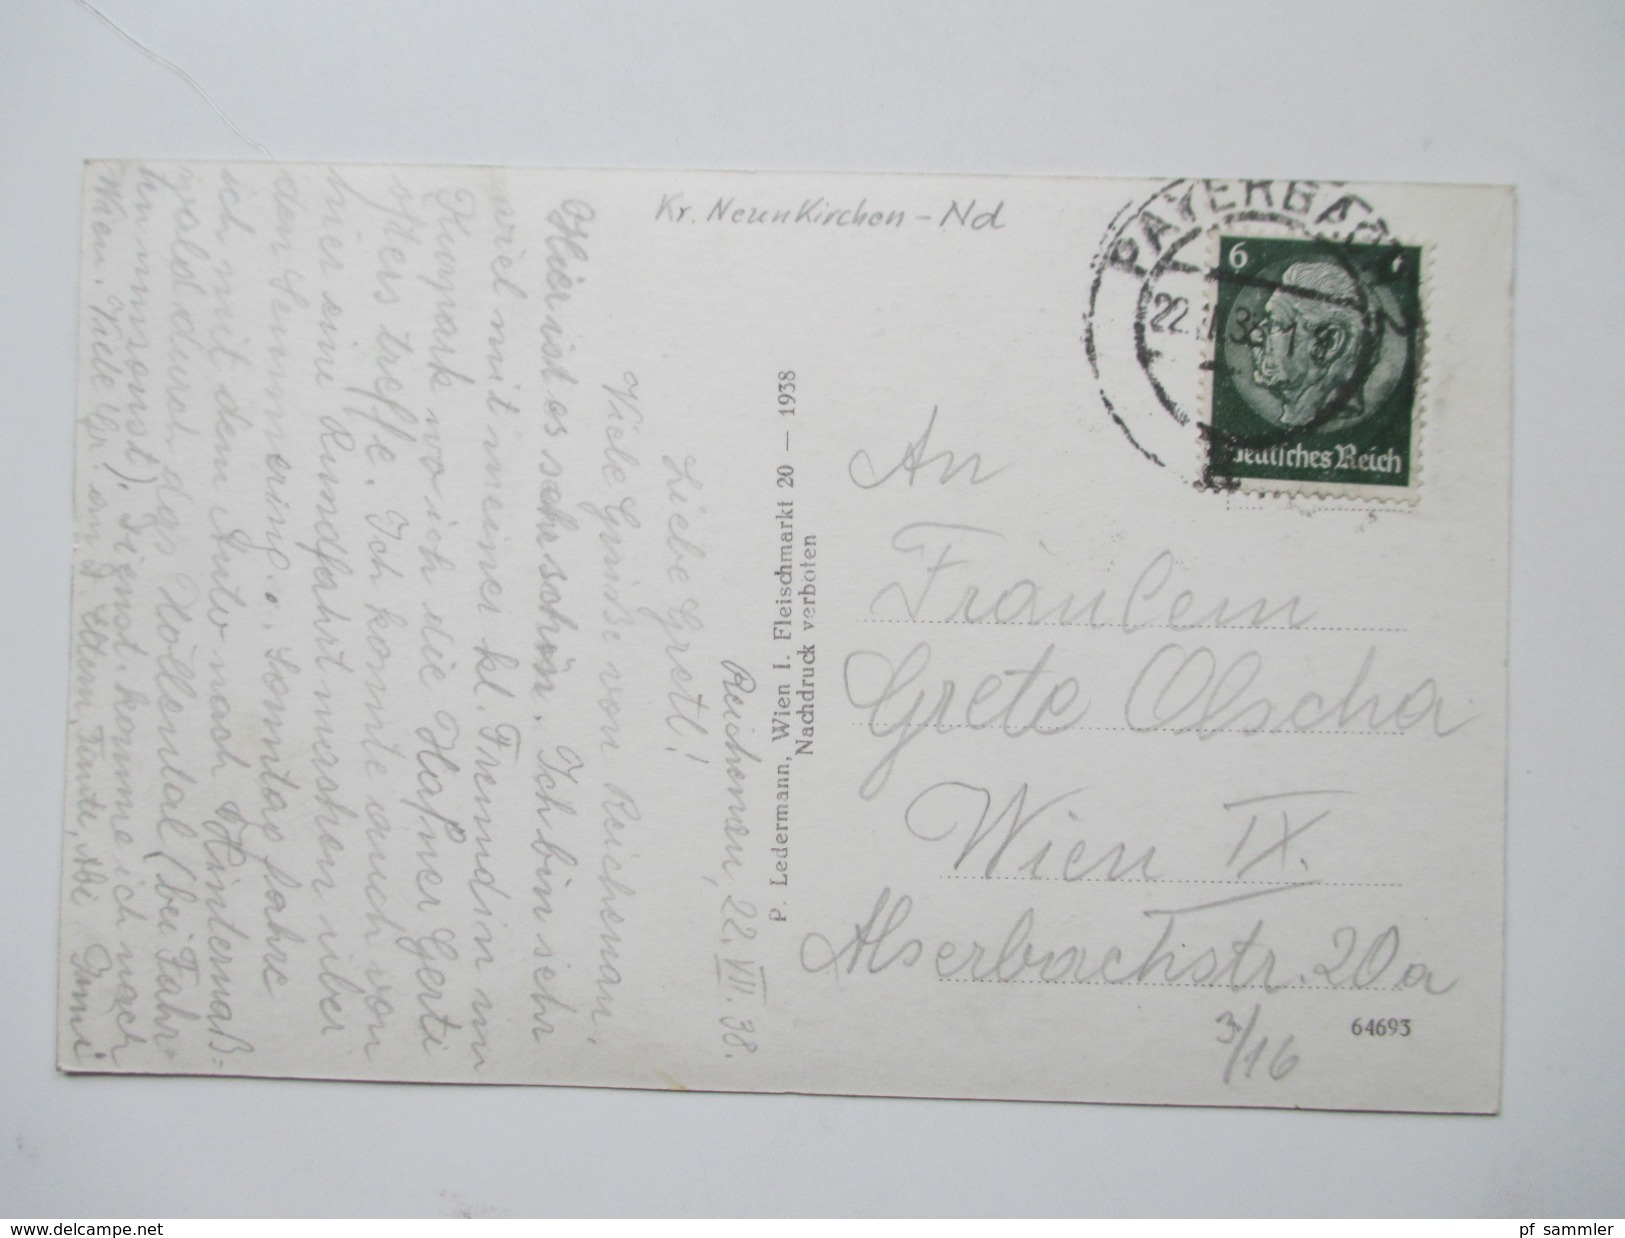 Kr. Neunkirchen - Nd
PAYERBACH
22. 38 18
2
6
Deutsches Reich
An
Fräulein
Grete Olscha
Wien IX.
Alserbachstr. 20a
3/16
64693
P. Ledermann, Wien I. Fleischmarkt 20 — 1938
Nachdruck verboten
Reichenau, 22. VII. 38.
Liebe Gretl!
Viele Grüße von Reichenau.
Hier ist es sehr schön. Ich bin sehr
viel mit meiner kl. Freundin im
Kurpark wo ich die Hafner Gerti
öfters treffe. Ich konnte auch von
hier eine Rundfahrt machen über
den Semmering. Sonntag fahre
ich mit dem Auto nach Hinternaß-
wald durch das Höllental (bei Fahr
ten umsonst). Dienst. komme ich nach
Wien. Viele Gr. an d. Eltern, Tante,